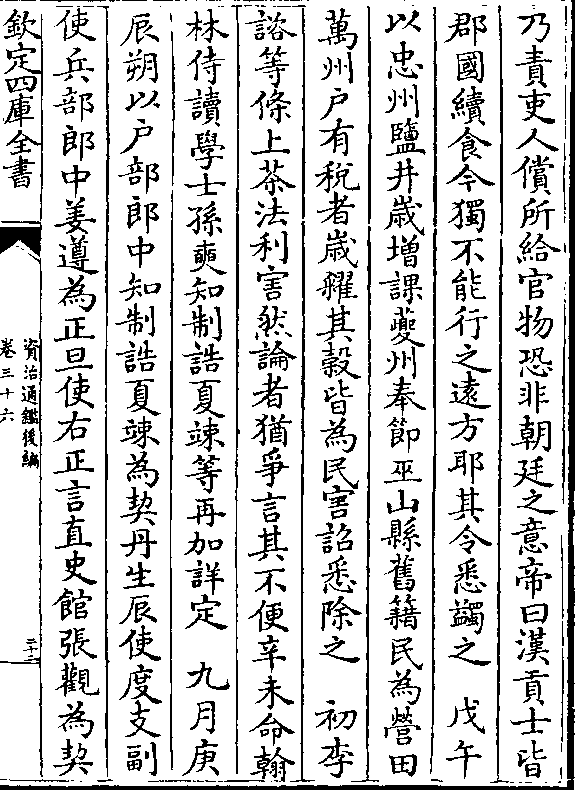 乃責吏人償所給官物恐非朝廷之意帝曰漢貢士皆
郡國續食今獨不能行之遠方耶其令悉蠲之　戊午
以忠州鹽井歲增課夔州奉節巫山縣舊籍民為營田
萬州户有稅者歲糴其穀皆為民害詔悉除之　初李
諮等條上茶法利害然論者猶爭言其不便辛未命翰
林侍讀學士孫奭知制誥夏竦等再加詳定　九月庚
辰朔以户部郎中知制誥夏竦為契丹生辰使度支副
使兵部郎中姜遵為正旦使右正言直史館張觀為契
欽定四庫全書
資治通鑑後編
卷三十六
三十二